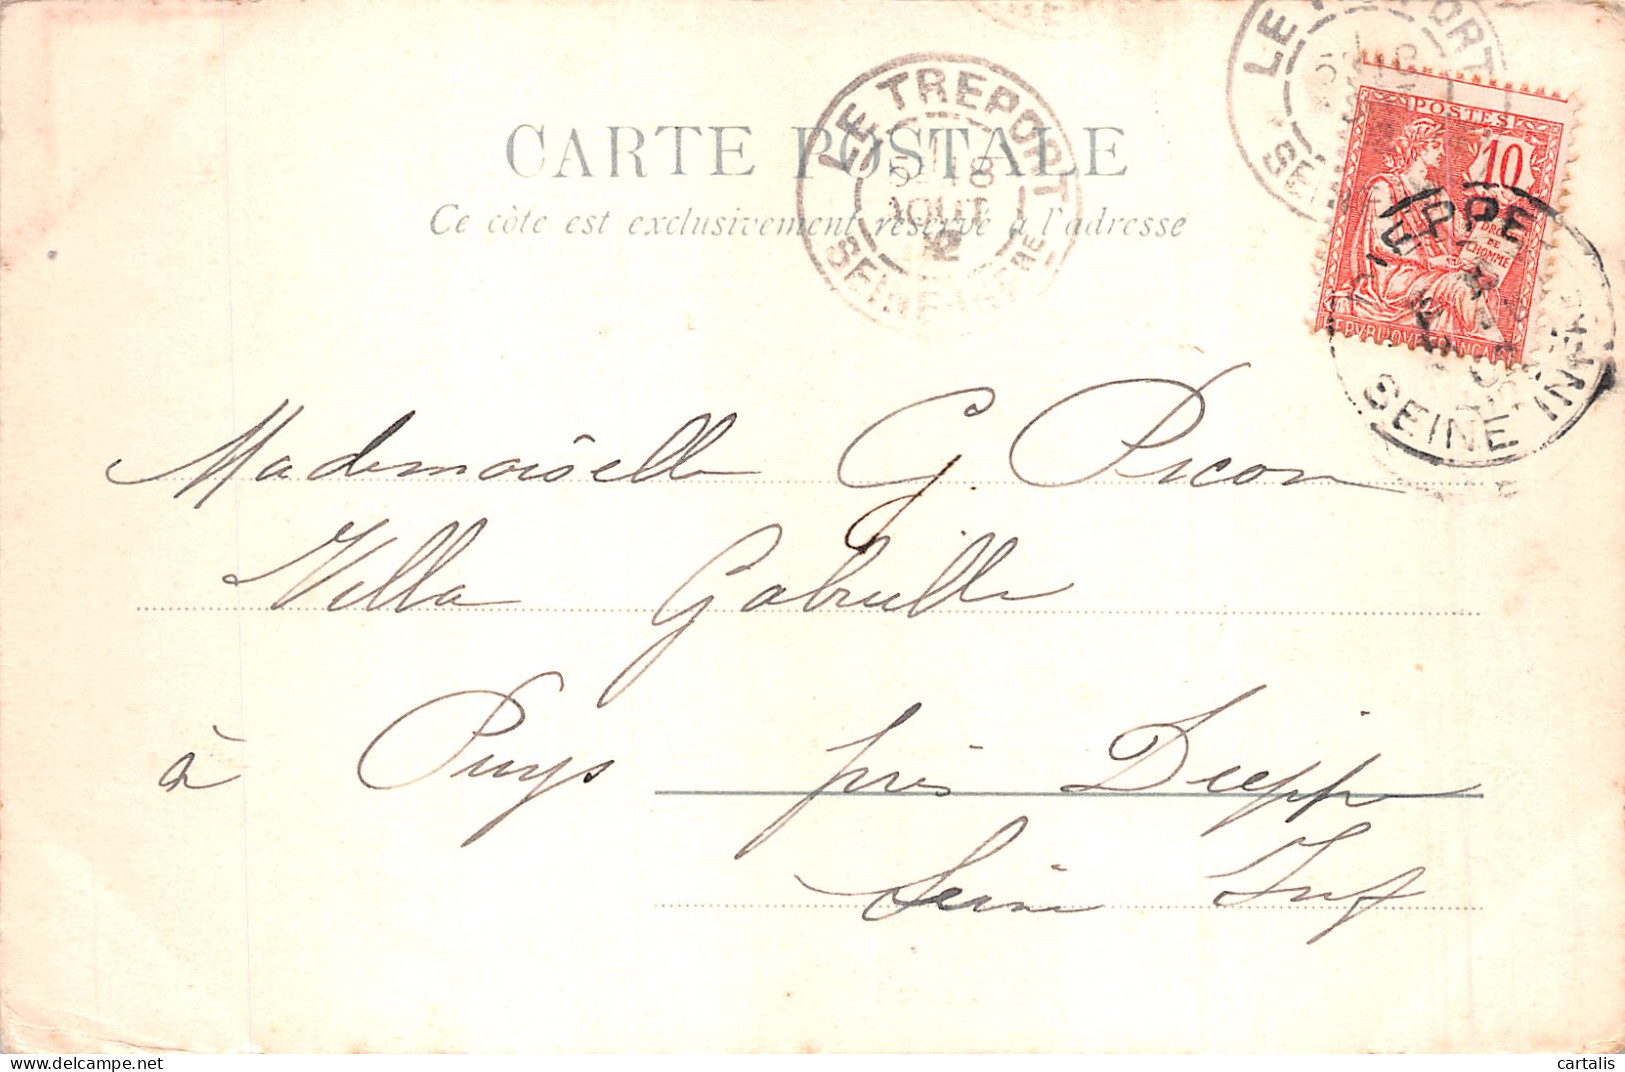 LE TREPORT
5E 18
AOUT
02
SEINE-INFRE
LE TREPORT
POSTES
10
DROITS
DE
L'HOMME
REPUBLIQUE FRANCAISE
DIEPPE
SEINE-INFRE
CARTE POSTALE
Ce côté est exclusivement réservé à l'adresse
Mademoiselle G. Picon
Villa Gabrielle
à Puys près Dieppe
Seine Inf
delcampe.net
cartalis